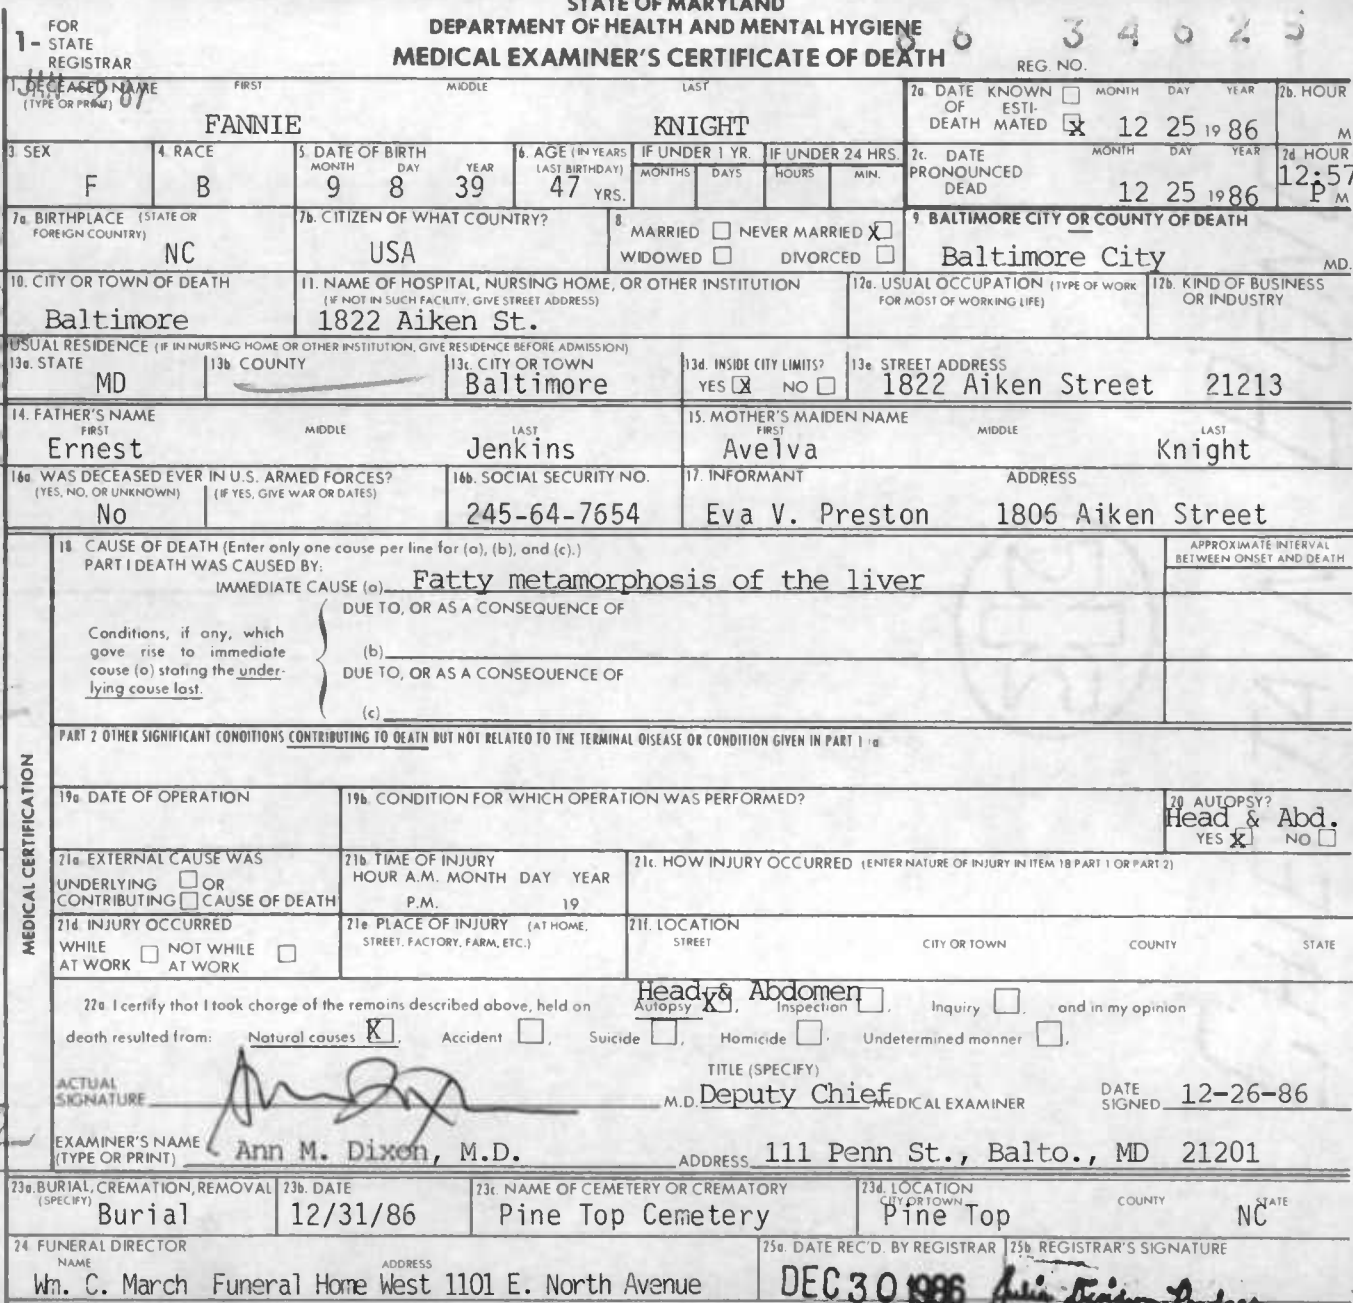 STATE OF MARYLAND
DEPARTMENT OF HEALTH AND MENTAL HYGIENE
MEDICAL EXAMINER'S CERTIFICATE OF DEATH
1- FOR STATE REGISTRAR
REG. NO. 86 34625
1. DECEASED NAME (TYPE OR PRINT) FIRST MIDDLE LAST
FANNIE KNIGHT
2a. DATE OF DEATH KNOWN ☐ ESTIMATED ☒ MONTH DAY YEAR 12 25 19 86
2b. HOUR M
3. SEX F
4. RACE B
5. DATE OF BIRTH MONTH DAY YEAR 9 8 39
6. AGE (IN YEARS LAST BIRTHDAY) 47 YRS.
IF UNDER 1 YR. MONTHS DAYS
IF UNDER 24 HRS. HOURS MIN.
2c. DATE PRONOUNCED DEAD MONTH DAY YEAR 12 25 19 86
2d HOUR 12:57 P M
7a. BIRTHPLACE (STATE OR FOREIGN COUNTRY) NC
7b. CITIZEN OF WHAT COUNTRY? USA
8 MARRIED ☐ NEVER MARRIED ☒
WIDOWED ☐ DIVORCED ☐
9. BALTIMORE CITY OR COUNTY OF DEATH
Baltimore City MD.
10. CITY OR TOWN OF DEATH
Baltimore
11. NAME OF HOSPITAL, NURSING HOME, OR OTHER INSTITUTION
(IF NOT IN SUCH FACILITY, GIVE STREET ADDRESS)
1822 Aiken St.
12a. USUAL OCCUPATION (TYPE OF WORK FOR MOST OF WORKING LIFE)
12b. KIND OF BUSINESS OR INDUSTRY
USUAL RESIDENCE (IF IN NURSING HOME OR OTHER INSTITUTION, GIVE RESIDENCE BEFORE ADMISSION)
13a. STATE MD
13b COUNTY
13c. CITY OR TOWN Baltimore
13d. INSIDE CITY LIMITS? YES ☒ NO ☐
13e STREET ADDRESS 1822 Aiken Street 21213
14. FATHER'S NAME FIRST MIDDLE LAST
Ernest Jenkins
15. MOTHER'S MAIDEN NAME FIRST MIDDLE LAST
Avelva Knight
16a WAS DECEASED EVER IN U.S. ARMED FORCES?
(YES, NO, OR UNKNOWN) (IF YES, GIVE WAR OR DATES)
No
16b. SOCIAL SECURITY NO.
245-64-7654
17. INFORMANT ADDRESS
Eva V. Preston 1806 Aiken Street
MEDICAL CERTIFICATION
18 CAUSE OF DEATH (Enter only one cause per line for (a), (b), and (c).)
PART I DEATH WAS CAUSED BY:
IMMEDIATE CAUSE (a) Fatty metamorphosis of the liver
APPROXIMATE INTERVAL BETWEEN ONSET AND DEATH
DUE TO, OR AS A CONSEQUENCE OF
Conditions, if any, which gave rise to immediate cause (a) stating the underlying cause last.
(b)
DUE TO, OR AS A CONSEQUENCE OF
(c)
PART 2 OTHER SIGNIFICANT CONDITIONS CONTRIBUTING TO DEATH BUT NOT RELATED TO THE TERMINAL DISEASE OR CONDITION GIVEN IN PART 1 a
19a DATE OF OPERATION
19b. CONDITION FOR WHICH OPERATION WAS PERFORMED?
20 AUTOPSY?
Head & Abd.
YES ☒ NO ☐
21a EXTERNAL CAUSE WAS
UNDERLYING ☐ OR
CONTRIBUTING ☐ CAUSE OF DEATH
21b. TIME OF INJURY
HOUR A.M. MONTH DAY YEAR
P.M. 19
21c. HOW INJURY OCCURRED (ENTER NATURE OF INJURY IN ITEM 18 PART 1 OR PART 2)
21d INJURY OCCURRED
WHILE AT WORK ☐ NOT WHILE AT WORK ☐
21e PLACE OF INJURY (AT HOME, STREET, FACTORY, FARM, ETC.)
21f. LOCATION
STREET CITY OR TOWN COUNTY STATE
Head & Abdomen
22a I certify that I took charge of the remains described above, held on Autopsy ☒, Inspection ☐, Inquiry ☐, and in my opinion
death resulted from: Natural causes ☒, Accident ☐, Suicide ☐, Homicide ☐, Undetermined manner ☐,
ACTUAL SIGNATURE M.D.
TITLE (SPECIFY)
Deputy Chief MEDICAL EXAMINER
DATE SIGNED 12-26-86
EXAMINER'S NAME (TYPE OR PRINT) Ann M. Dixon, M.D.
ADDRESS 111 Penn St., Balto., MD 21201
23a. BURIAL, CREMATION, REMOVAL (SPECIFY) Burial
23b. DATE 12/31/86
23c. NAME OF CEMETERY OR CREMATORY
Pine Top Cemetery
23d. LOCATION CITY OR TOWN COUNTY STATE
Pine Top NC
24 FUNERAL DIRECTOR
NAME ADDRESS
Wm. C. March Funeral Home West 1101 E. North Avenue
25a. DATE REC'D. BY REGISTRAR
DEC 30 1986
25b REGISTRAR'S SIGNATURE